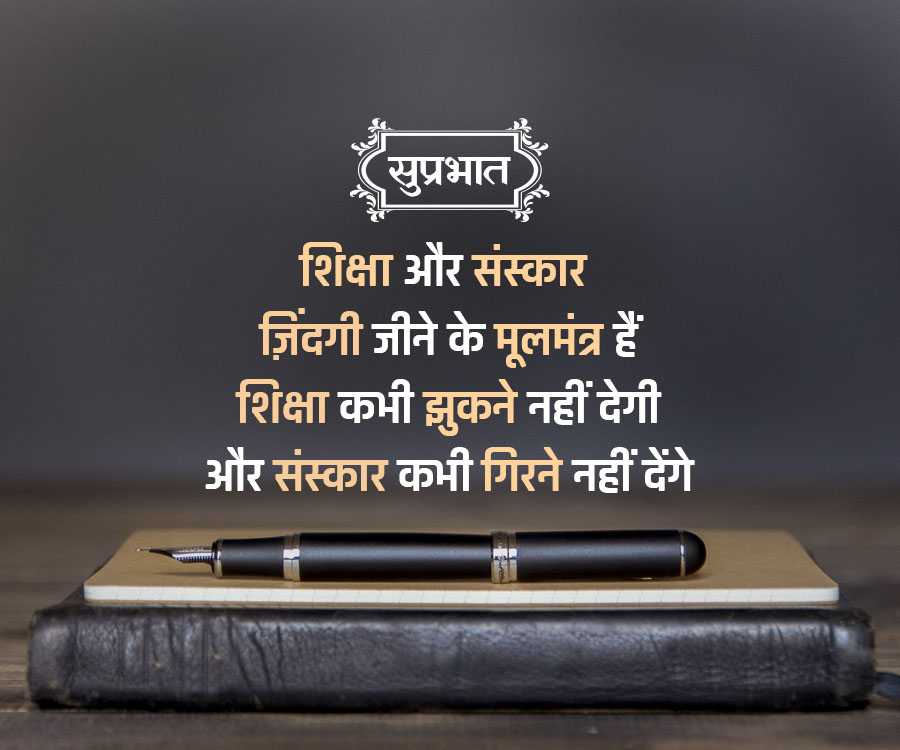 सुप्रभात
शिक्षा और संस्कार
ज़िंदगी जीने के मूलमंत्र हैं
शिक्षा कभी झुकने नहीं देगी
और संस्कार कभी गिरने नहीं देंगे